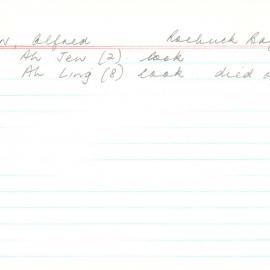 n, Alfred Roebuck Ba
Ah Jew (2) cook
Ah Ling (8) cook died